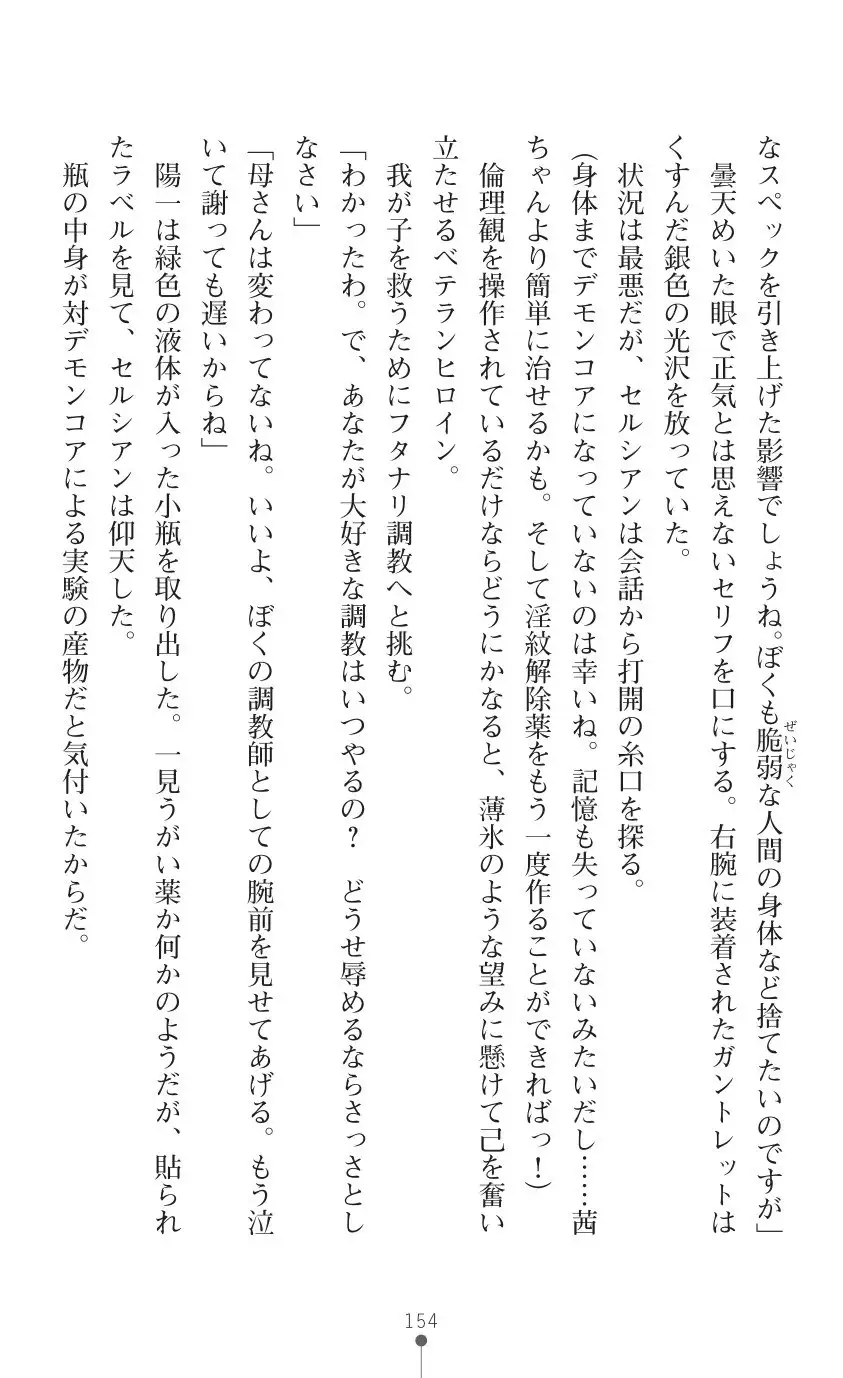 なスペックを引き上げた影響でしょうね。ぼくも脆弱な人間の身体など捨てたいのですが」
ぜいじゃく
曇天めいた眼で正気とは思えないセリフを口にする。右腕に装着されたガントレットは
くすんだ銀色の光沢を放っていた。
状況は最悪だが、セルシアンは会話から打開の糸口を探る。
(身体までデモンコアになっていないのは幸いね。記憶も失っていないみたいだし……茜
ちゃんより簡単に治せるかも。そして淫紋解除薬をもう一度作ることができればっ!)
倫理観を操作されているだけならどうにかなると、薄氷のような望みに懸けて己を奮い
立たせるベテランヒロイン。
我が子を救うためにフタナリ調教へと挑む。
「わかったわ。で、あなたが大好きな調教はいつやるの? どうせ辱めるならさっさとし
なさい」
「母さんは変わってないね。いいよ、ぼくの調教師としての腕前を見せてあげる。もう泣
いて謝っても遅いからね」
陽一は緑色の液体が入った小瓶を取り出した。一見うがい薬か何かのようだが、貼られ
たラベルを見て、セルシアンは仰天した。
瓶の中身が対デモンコアによる実験の産物だと気付いたからだ。
154